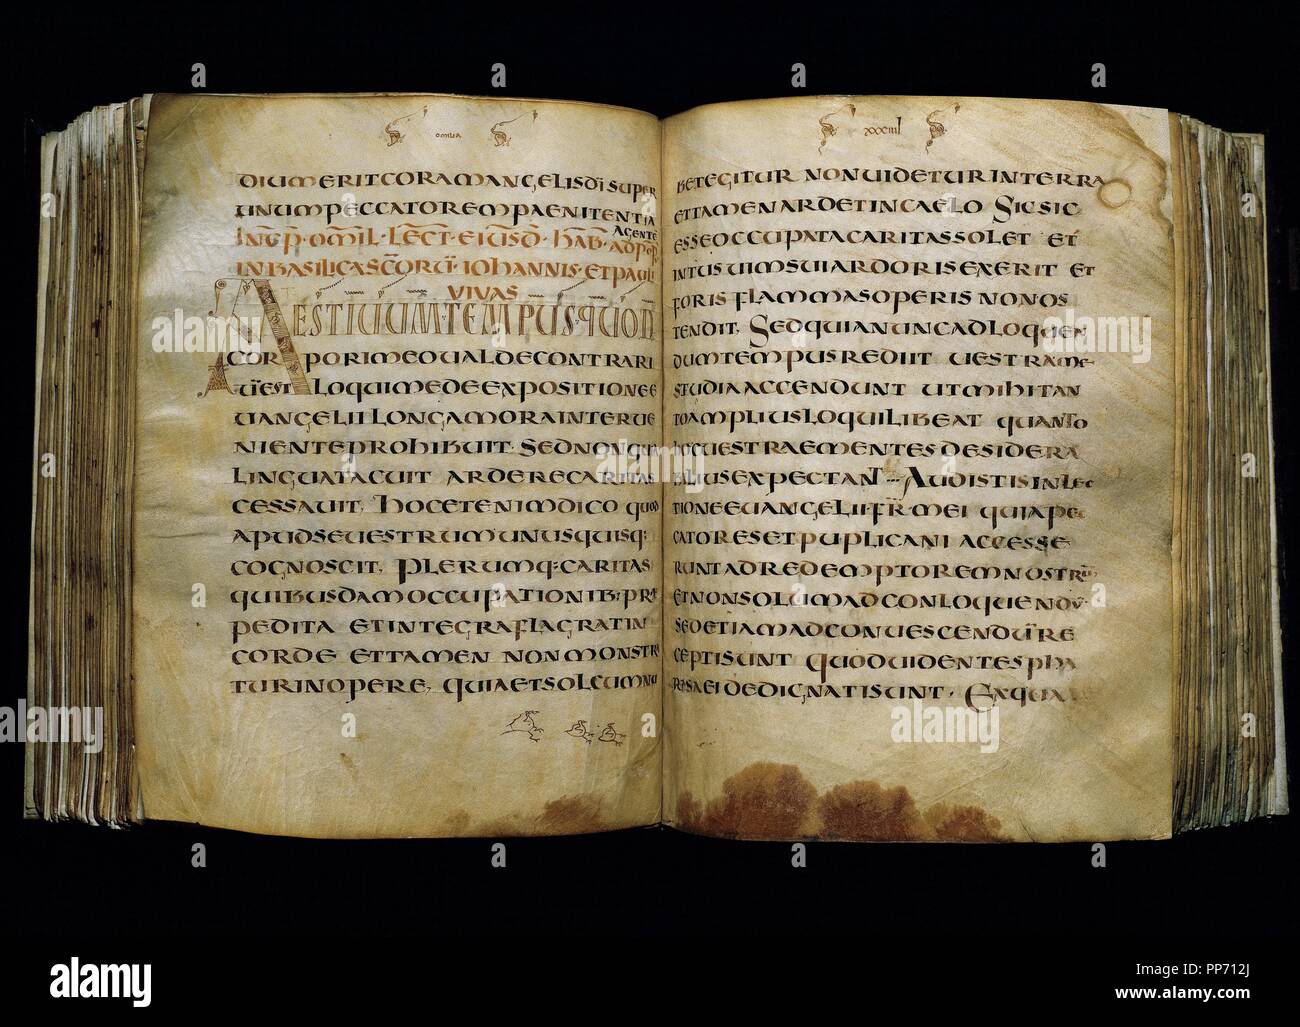 omilia
DIUM ERIT CORAM ANGELIS DI SUPER
UNUM PECCATOREM PAENITENTIA
AGENTE
INC̄P·OMIL·LECT·EIUSD·HAB·AD POP
IN BASILICA SCORŪ·IOHANNIS·ET PAULI
VIVAS
AESTIUUM·TEMPUS·QUOD
CORPORI MEO UALDE CONTRARI
ŪEST LOQUI ME DE EXPOSITIONE E
UANGELII LONGA MORA INTERUE
NIENTE PROHIBUIT· SED NON QUIA
LINGUA TACUIT ARDERE CARITAS
CESSAUIT, HOC ETENIM DICO QUOD
APUD SE UESTRUM UNUSQUISQ:
COGNOSCIT, PLERUMQ: CARITAS
QUIBUSDAM OCCUPATIONIB; PRAE
PEDITA ET INTEGRA FLAGRAT IN
CORDE ET TAMEN NON MONSTRA
TUR IN OPERE, QUIA ET SOL CUM NU
xxxiiii
BE TEGITUR NON UIDETUR IN TERRA
ET TAMEN ARDET IN CAELO SIC SIC
ESSE OCCUPATA CARITAS SOLET ET
INTUS UIM SUI ARDORIS EXERIT ET
FORIS FLAMMAS OPERIS NON OS
TENDIT, SED QUIA NUNC AD LOQUEN
DUM TEMPUS REDIIT UESTRA ME
STUDIA ACCENDUNT UT MIHI TAN
TO AMPLIUS LOQUI LIBEAT QUANTO
HOC UESTRAE MENTES DESIDERA
BILIUS EXPECTANT AUDISTIS IN LEC
TIONE EUANGELII FR̄ MEI QUIA PEC
CATORES ET PUPLICANI ACCESSE
RUNT AD REDEMPTOREM NOSTRŪ
ET NON SOLUM AD CONLOQUENDŪ·
SED ETIAM AD CONUESCENDŪ RE
CEPTI SUNT QUOD UIDENTES PHA
RISAEI DEDIGNATI SUNT· EX QUA
alamy
Image ID: PP712J
www.alamy.com